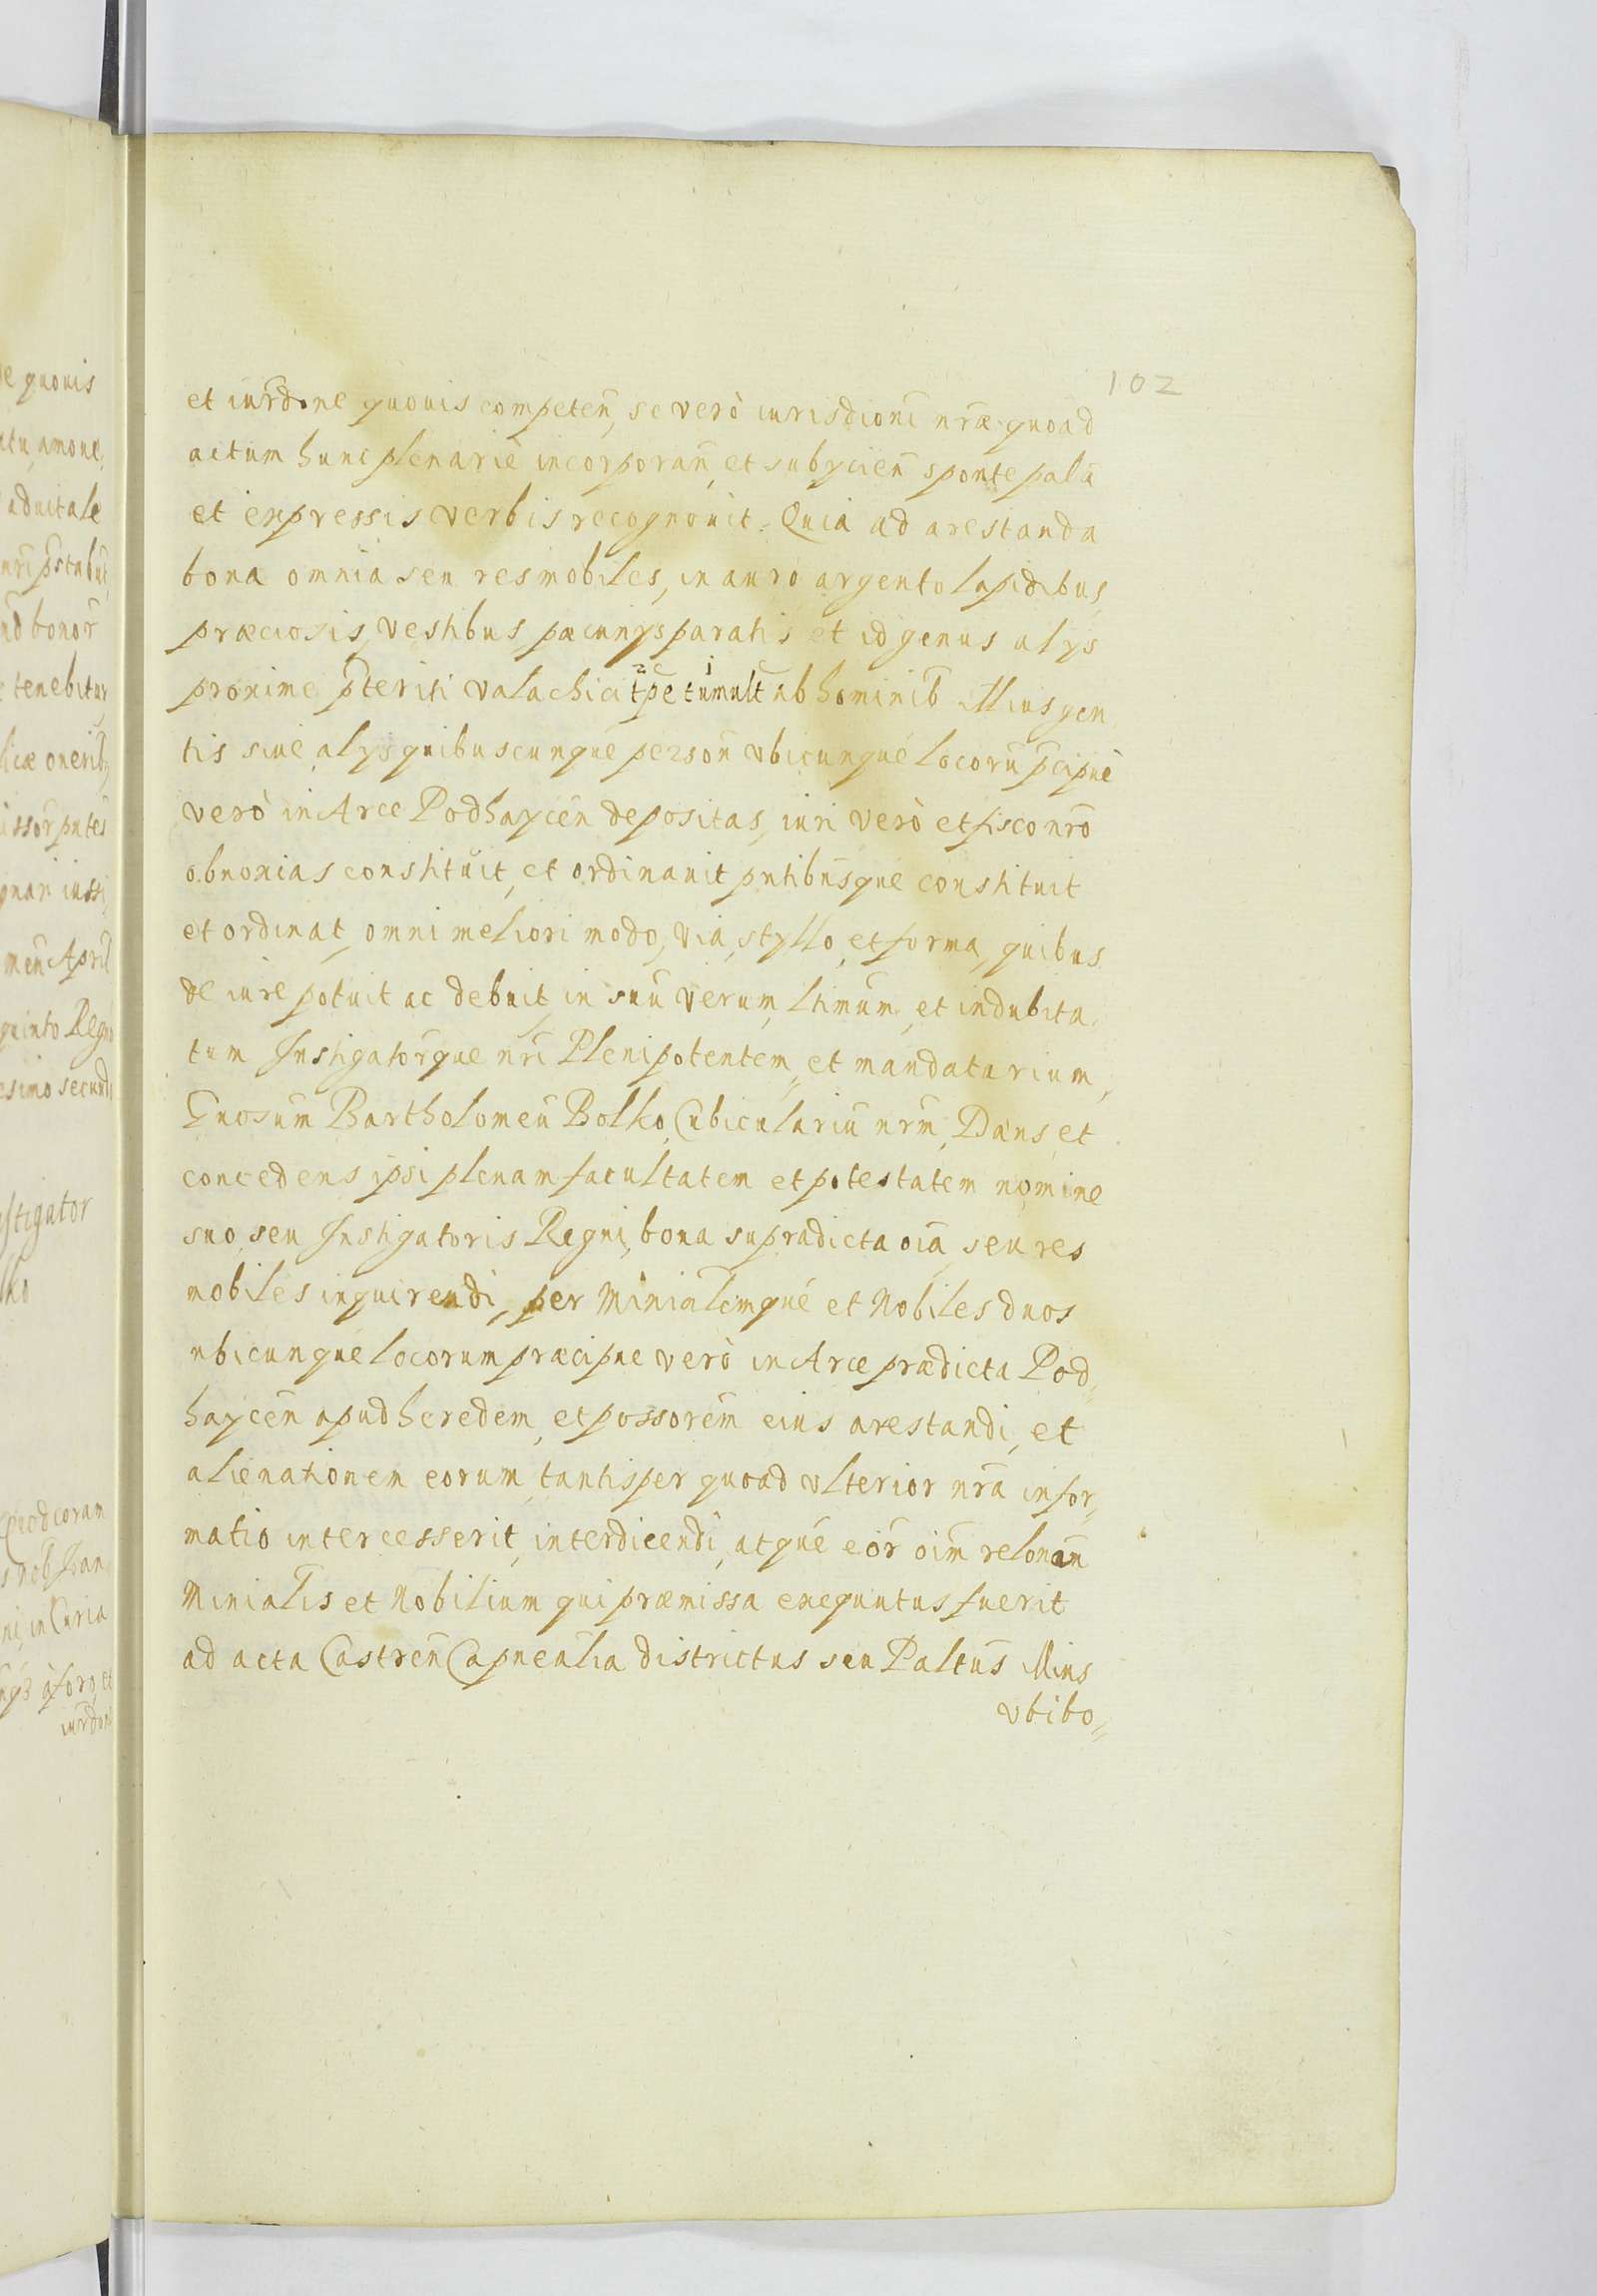 102
et iur̄done quouis competen̄, se verò iurisdioni nr̄æ quoad
actum hunc plenariè incorporan̄, et subycien̄ sponte palā
et expressis verbis recognouit. Quia ad arestanda
bona omnia seu res mobiles, in auro argento lapidibus
præciosis, vestibus pæcunys paratis et id genus alys
proxime p̄teriti valachici tpe tumult ab hominib̄ illius gen
tis siue alys quibuscunque person̄ vbicunque locorū p̄cipuè
verò in Arce Podhaycen̄ depositas, iuri verò et fisco nrō
obnoxias constituit, et ordinauit pn̄tibusque constituit
et ordinat, omni meliori modo, via, styllo, et forma, quibus
de iure potuit ac debuit, in suū verum, ltimum, et indubita
tum Instigatorq̄ue nr̄i Plenipotentem, et mandatarium,
Gn̄osum Bartholomeū Bolko Cubiculariū nrm̄, Dans, et
concedens ipsi plenam facultatem et potestatem nomine
suo, seu Instigatoris Regni, bona supradicta oīa seu res
mobiles inquirendi, per Minialemque et Nobiles duos
ubicunque locorum præcipue verò in Arce prædicta Pod
haycen̄ apud heredem, et possorem̄ eius arestandi, et
alienationem eorum, tantisper quoad vlterior nr̄a infor
matio intercesserit, interdicendi, atque eōr oīm relonan̄
Minialis et Nobilium qui præmissa exequutus fuerit
ad acta Castren̄ Capnealia districtus seu Paltus̄ illius
vbi bo
de quouis
aduitale
tenebitur
quinto Reg
stigator
in Curia